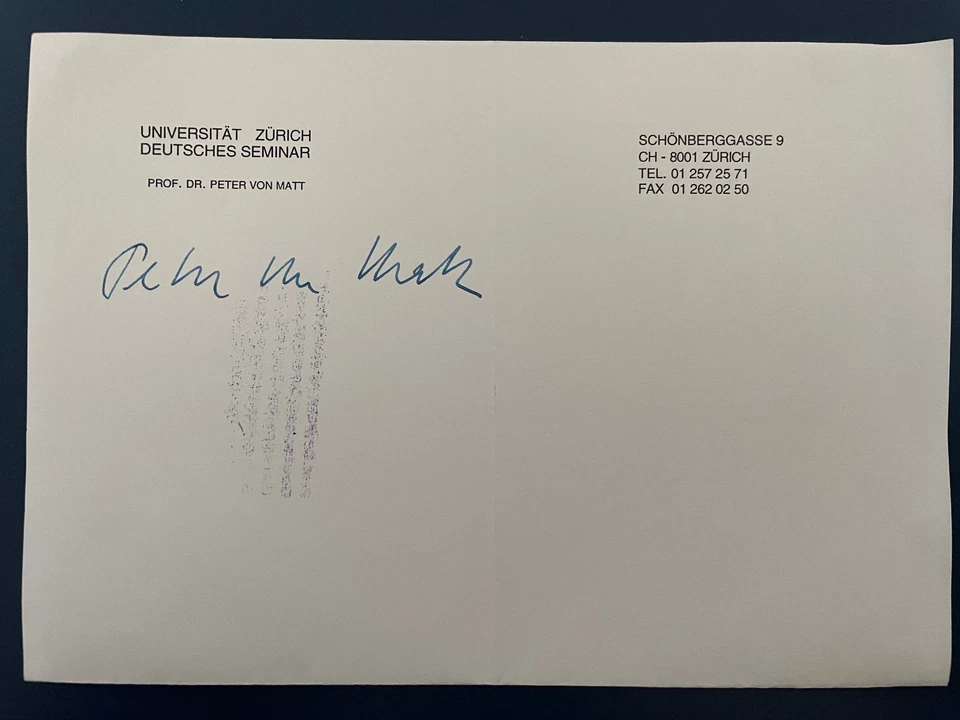 UNIVERSITÄT ZÜRICH
DEUTSCHES SEMINAR
PROF. DR. PETER VON MATT
SCHÖNBERGGASSE 9
CH - 8001 ZÜRICH
TEL. 01 257 25 71
FAX 01 262 02 50
Peter von Matt